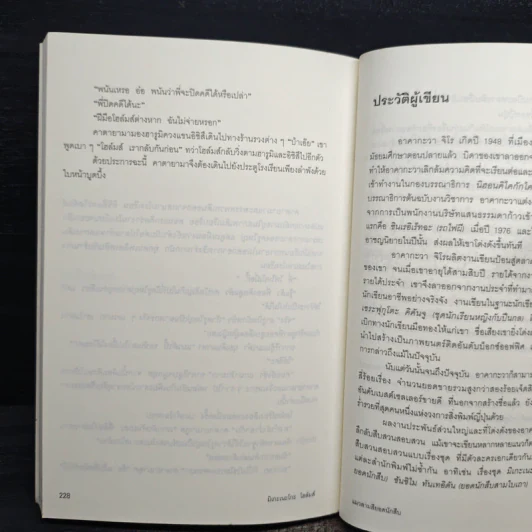 "พนันเหรอ อ๋อ พนันว่าพี่จะปิดคดีได้หรือเปล่า"
"พี่ปิดคดีได้นะ"
"ฝีมือโฮล์มส์ต่างหาก ฉันไม่จ่ายหรอก"
คาตายามามองฮารุมิควงแขนอิชิสึเดินไปทางร้านรวงต่าง ๆ "บ้าเอ๊ย" เขา
พูดเบา ๆ "โฮล์มส์ เรากลับกันก่อน" ทว่าโฮล์มส์กลับวิ่งตามฮารุมิและอิชิสึไปอีกตัว
ด้วยประการฉะนี้ คาตายามาจึงต้องเดินไปยังประตูโรงเรียนเพียงลำพังด้วย
ใบหน้าบูดบึ้ง
228
มิเกะเนะโกะ โฮล์มส์
ประวัติผู้เขียน
อาคากะวา จิโร เกิดปี 1948 ที่เมือง
มัธยมศึกษาตอนปลายแล้ว บิดาของเขาลาออก
ทำให้อาคากะวาเลิกล้มความคิดที่จะเรียนต่อและ
เข้าทำงานในกองบรรณาธิการ
บรรณาธิการต้นฉบับงานวิชาการ อาคากะวาแต่ง
จากการเป็นพนักงานบริษัทแสนธรรมดาก้าวเข้า
แรกคือ ชินเรอิเร็ทฉะ (รถไฟผี) เมื่อปี 1976 และ
อาชญนิยายในปีนั้น ส่งผลให้เขาโด่งดังขึ้นทันที
อาคากะวา จิโรผลิตงานเขียนป้อนสู่ตลาด
ของเขา จนเมื่อเขาอายุได้สามสิบปี รายได้จาก
รายได้ประจำ เขาจึงลาออกจากงานประจำที่ทำมา
นักเขียนอาชีพอย่างจริงจัง งานเขียนในฐานะนัก
เซระฟุกุโตะ คิคันจู (ชุดนักเรียนหญิงกับปืนกล)
เบิกทางนักเขียนมือทองให้แก่เขา ชื่อเสียงเขายิ่งโด่ง
นำไปสร้างเป็นภาพยนตร์ติดอันดับบ็อกซ์ออฟฟิศ
การกล่าวถึงแม้ในปัจจุบัน
นับแต่วันนั้นจนถึงปัจจุบัน อาคากะวาก็สามา
สี่ร้อยเรื่อง จำนวนยอดขายรวมสูงกว่าสองร้อยเจ็ด
อันดับเบสต์เซลเลอร์ขายดี ที่นอกจากสร้างชื่อแล้ว ยัง
ร่ำรวยที่สุดคนหนึ่งแห่งวงการสิ่งพิมพ์ญี่ปุ่นด้วย
ผลงานประพันธ์ส่วนใหญ่และที่โด่งดังของอาคา
ลึกลับสืบสวนสอบสวน แม้เขาจะเขียนหลากหลายแนวก็
สืบสวนสอบสวนแบบเรื่องชุด ที่มีตัวละครเอกเดียวกัน
แต่ละสำนักพิมพ์ไม่ซ้ำกัน อาทิเช่น เรื่องชุด มิเกะเนะ
ยอดนักสืบ)
แมวสามสียอดนักสืบ